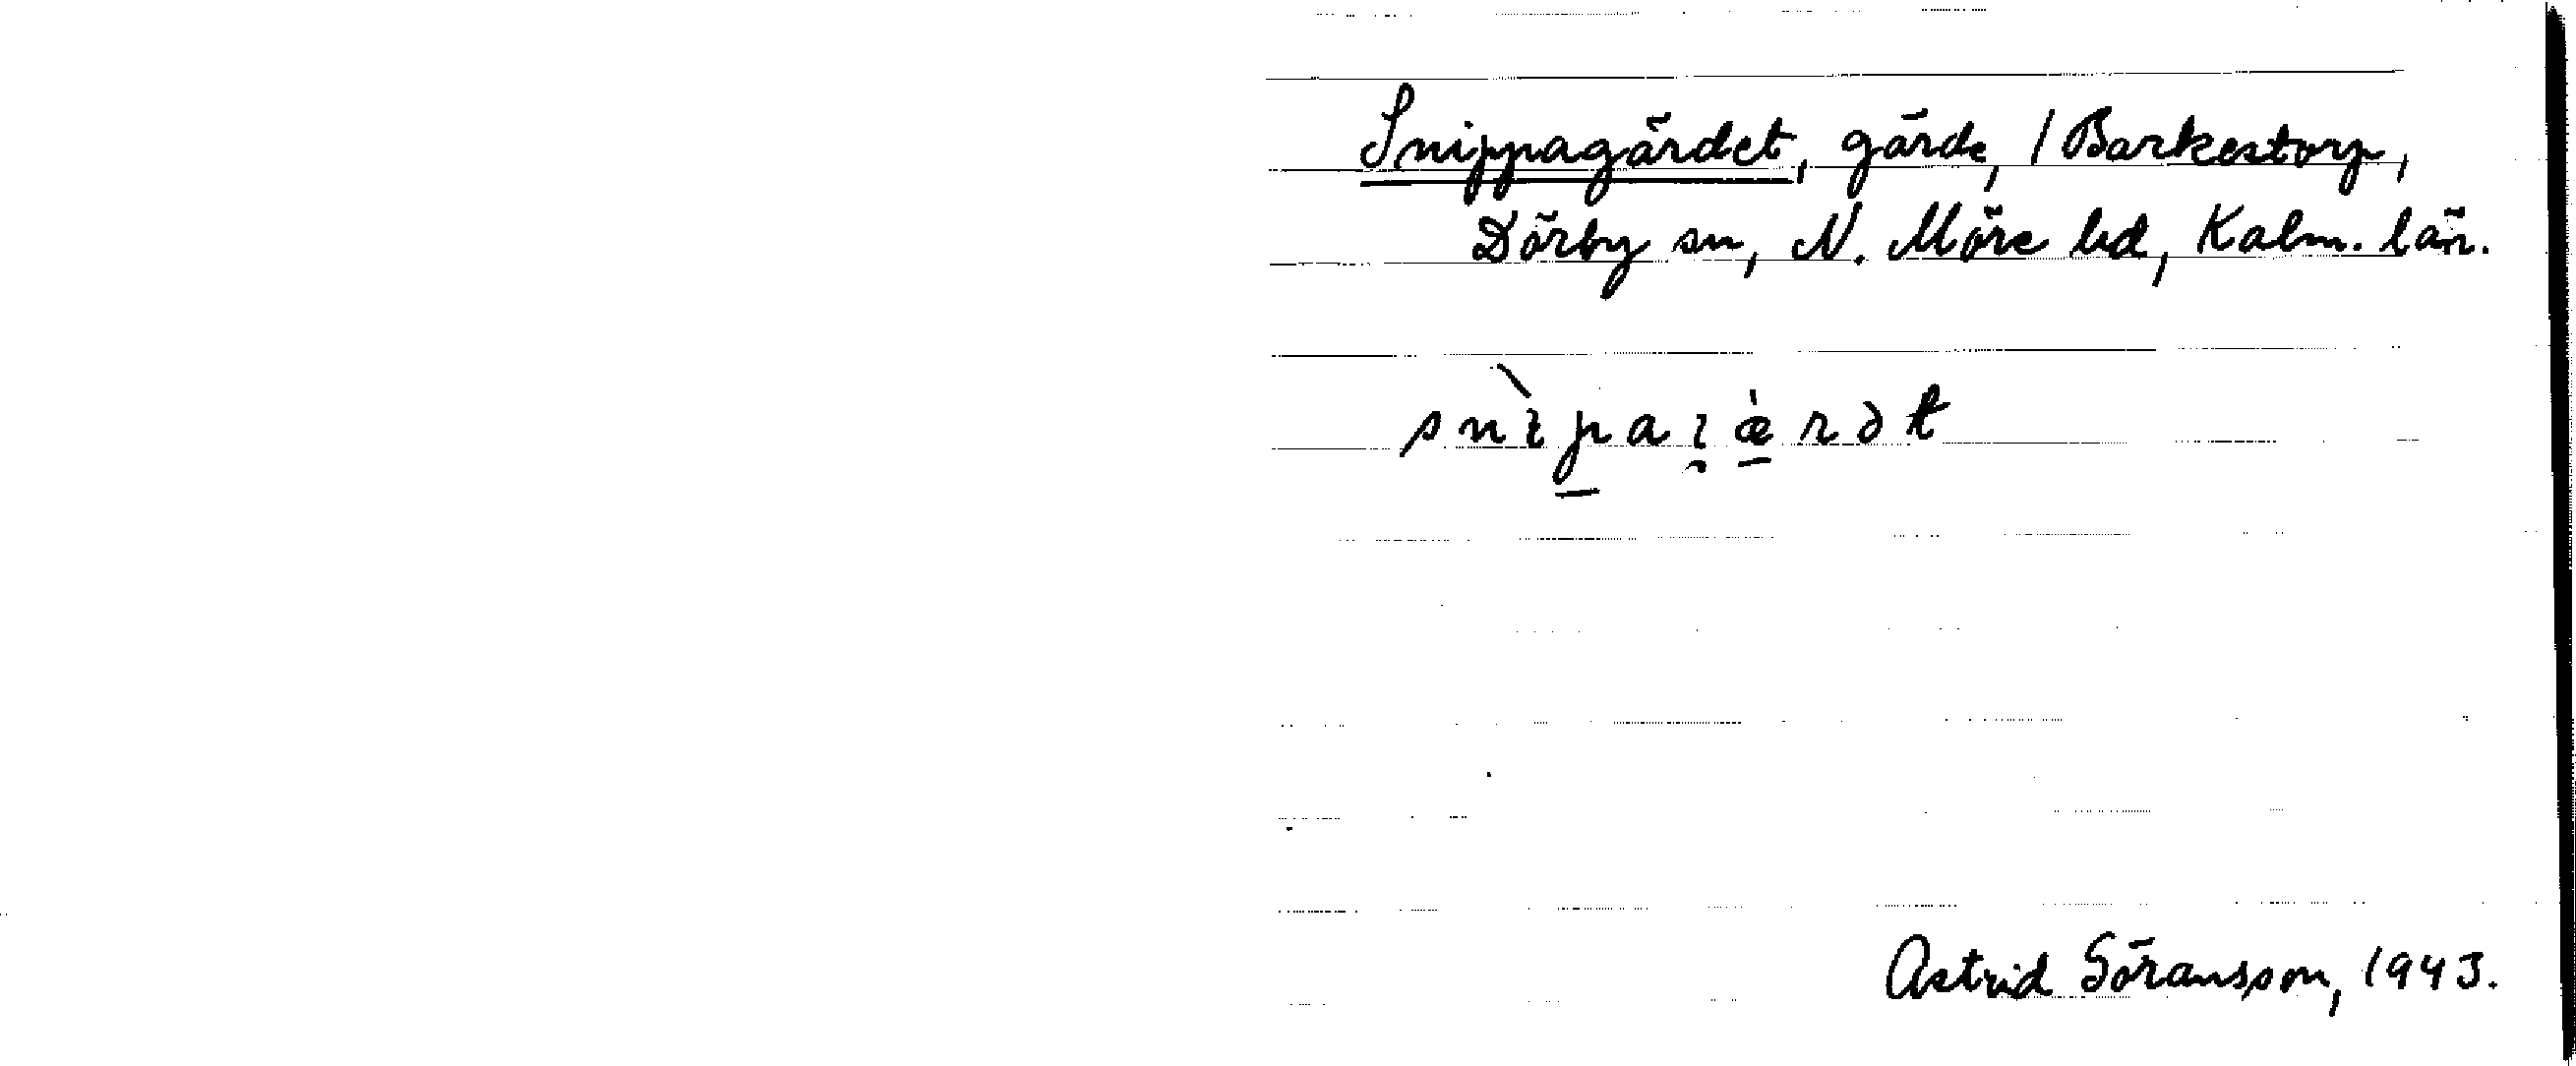 Snippagärdet, gärde, / Barkestorp,
Dörby sn, N. Möre hd, Kalm. län.
snìpaı̯æ̀rət
Astrid Göransson, 1943.